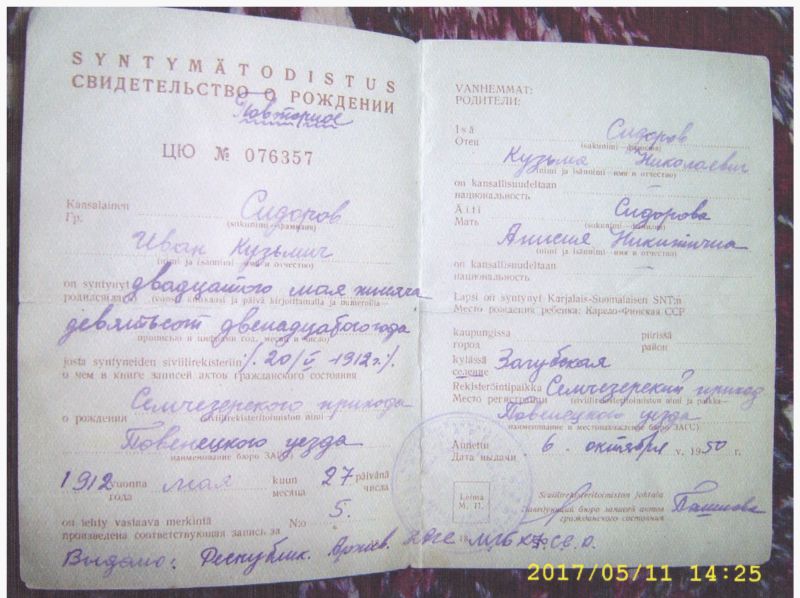 SYNTYMÄTODISTUS
СВИДЕТЕЛЬСТВО О РОЖДЕНИИ
Повторное
ЦЮ № 076357
Kansalainen
Гр.
Сидоров
(sukunimi—фамилия)
Иван Кузьмич
(nimi ja isännimi—имя и отчество)
on syntynyt двадцатого мая тысяча
родился(лась) (vuosi, kuukausi ja päivä kirjoittamalla ja numeroilla—
девятьсот двенадцатого года
прописью и цифрами год, месяц и число)
josta syntyneiden siviilirekisteriin /. 20/V 1912 г./.
о чем в книге записей актов гражданского состояния
Семчезерского прихода
о рождении (siviilirekisteritoimiston nimi
Повенецкого уезда
наименование бюро ЗАГС)
1912 vuonna мая kuun 27 päivänä
года месяца числа
on tehty vastaava merkintä N:o 5.
произведена соответствующая запись за №
Выдано: Республик. Архив.
VANHEMMAT:
РОДИТЕЛИ:
Isä
Отец
Сидоров
(sukunimi—фамилия)
Кузьма Николаевич
(nimi ja isännimi—имя и отчество)
on kansallisuudeltaan —
национальность
Äiti
Мать
Сидорова
(sukunimi—фамилия)
Анисия Никитична
(nimi ja isännimi—имя и отчество)
on kansallisuudeltaan —
национальность
Lapsi on syntynyt Karjalais-Suomalaisen SNT:n
Место рождения ребенка: Карело-Финская ССР
kaupungissa piirissä
город район
kylässä
селение
Загубская
Rekisteröintipaikka Семчезерский приход
Место регистрации (siviilirekisteritoimiston nimi ja paikka—
Повенецкого уезда
наименование и местонахождение бюро ЗАГС)
Annettu
Дата выдачи
6 октября v. 1950 г.
Leima
М. П.
Siviilirekisteritoimiston johtaja
Заведующий бюро записей актов
гражданского состояния
2017/05/11 14:25